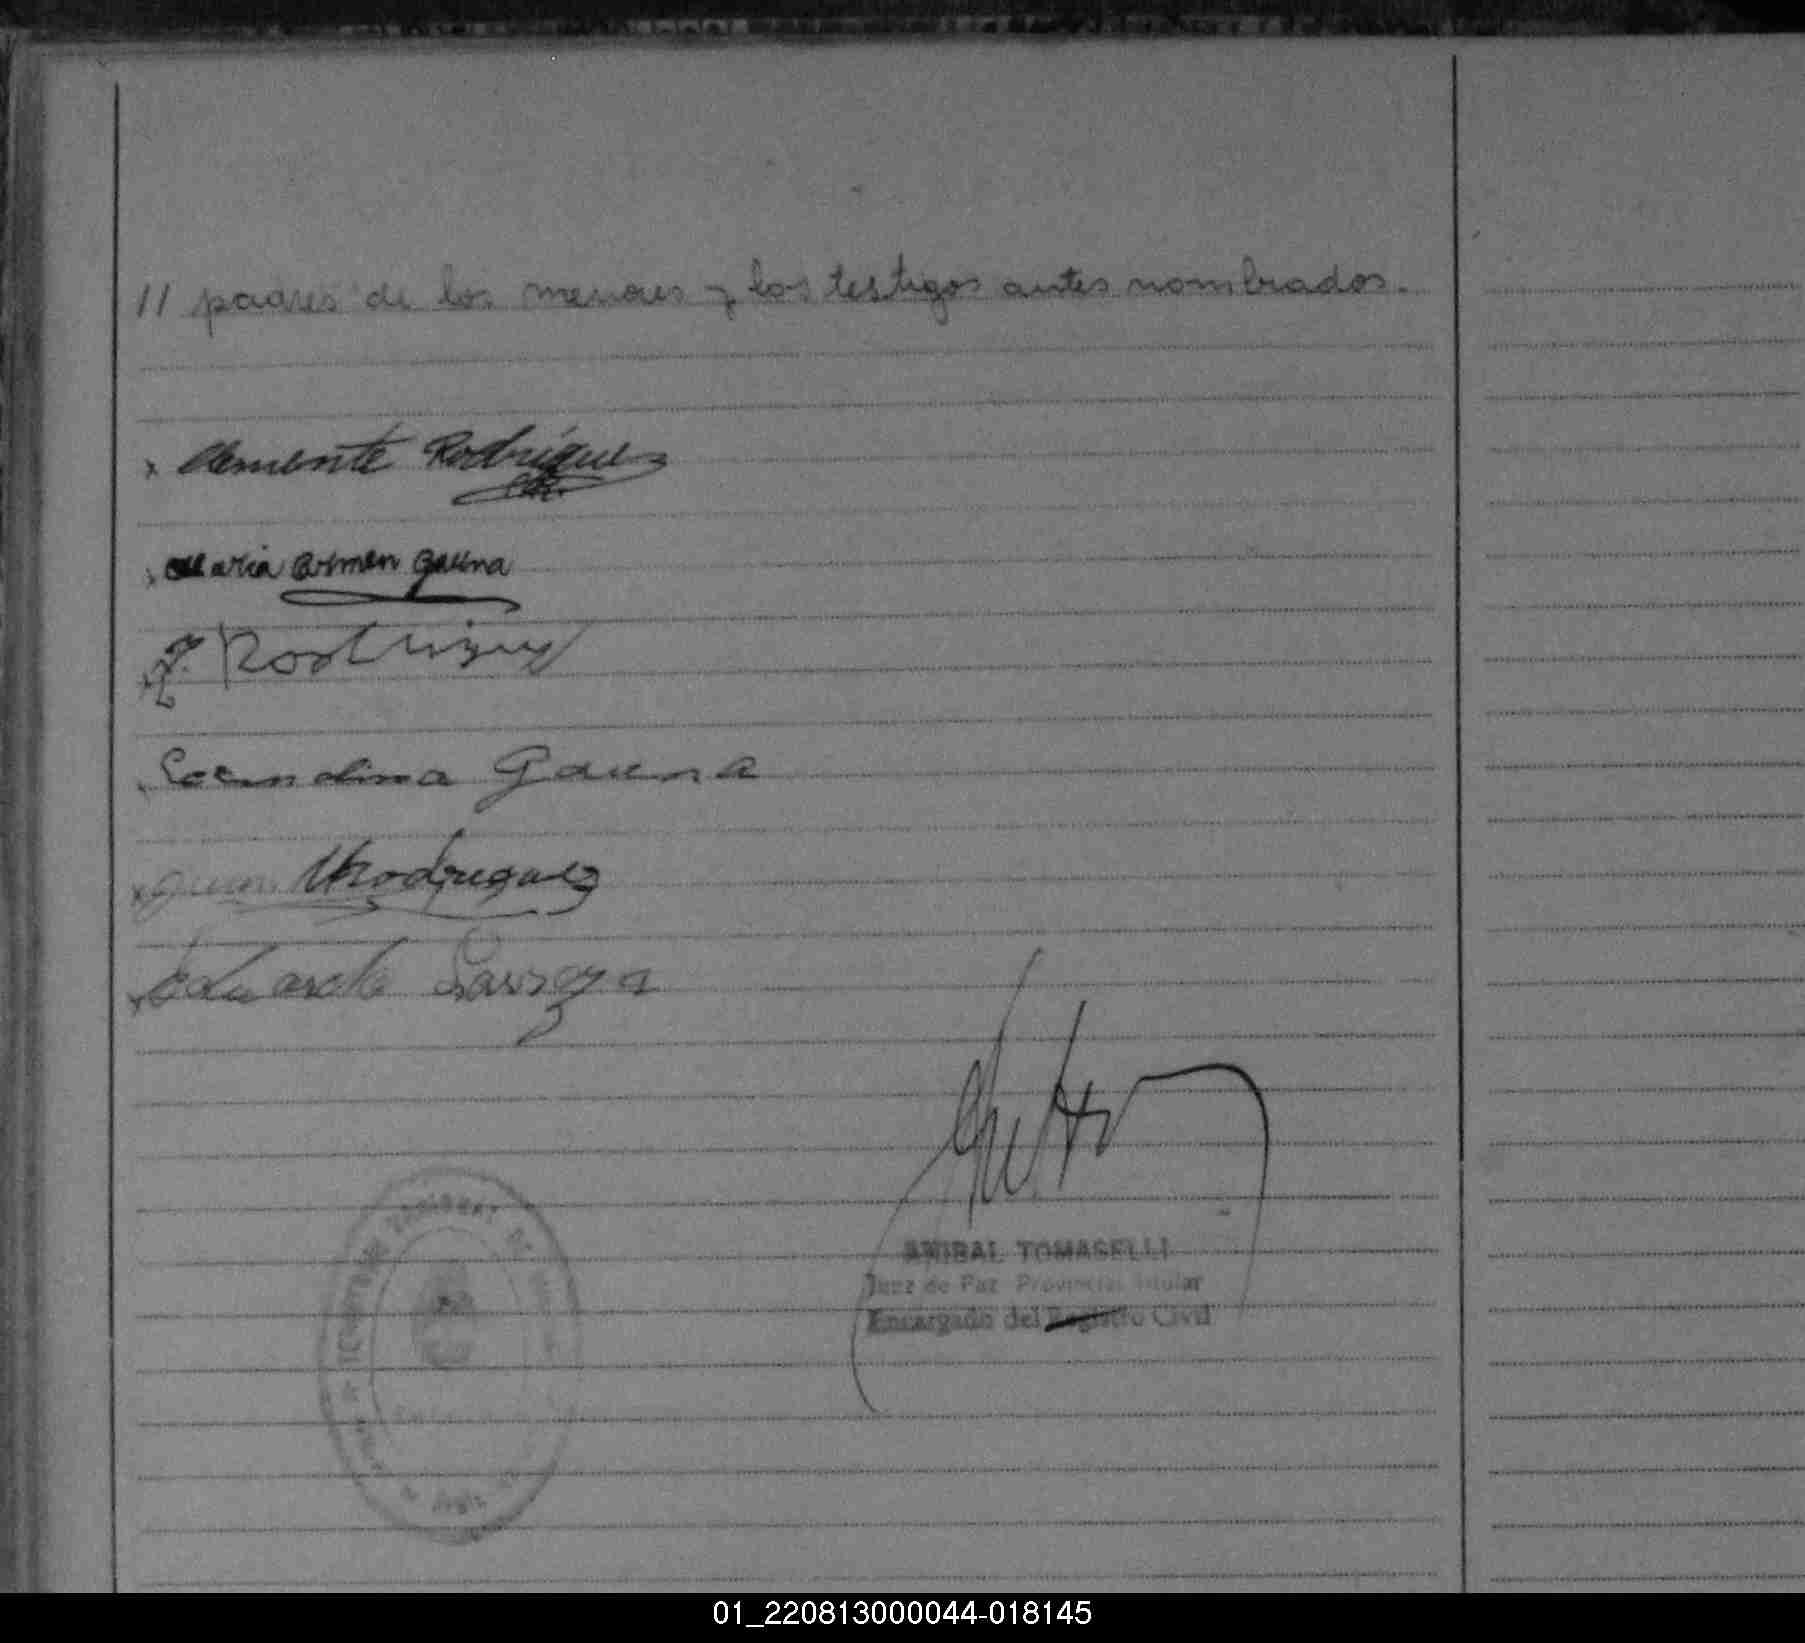 // padres de los menores y los testigos antes nombrados.
x Clemente Rodriguez
CR.
x Maria Carmen Gauna
x J. Rodriguez
x Secundina Gauna
x Juan Rodriguez
x Eduardo
ANIBAL TOMASELLI
Juez de Paz Provincial Titular
Encargado del Registro Civil
01_220813000044-018145